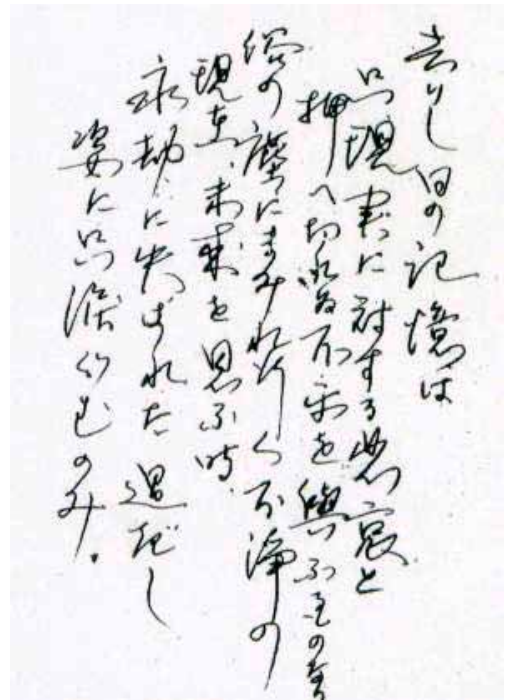 去りし日の記憶は
只現実に対する悲哀と
押へ切れぬ不安を与ふるのみ
俗の塵にまみれ行く不浄の
現在、未来を思ふ時、
永劫に失はれた過ぎし
姿に只涙ぐむのみ。